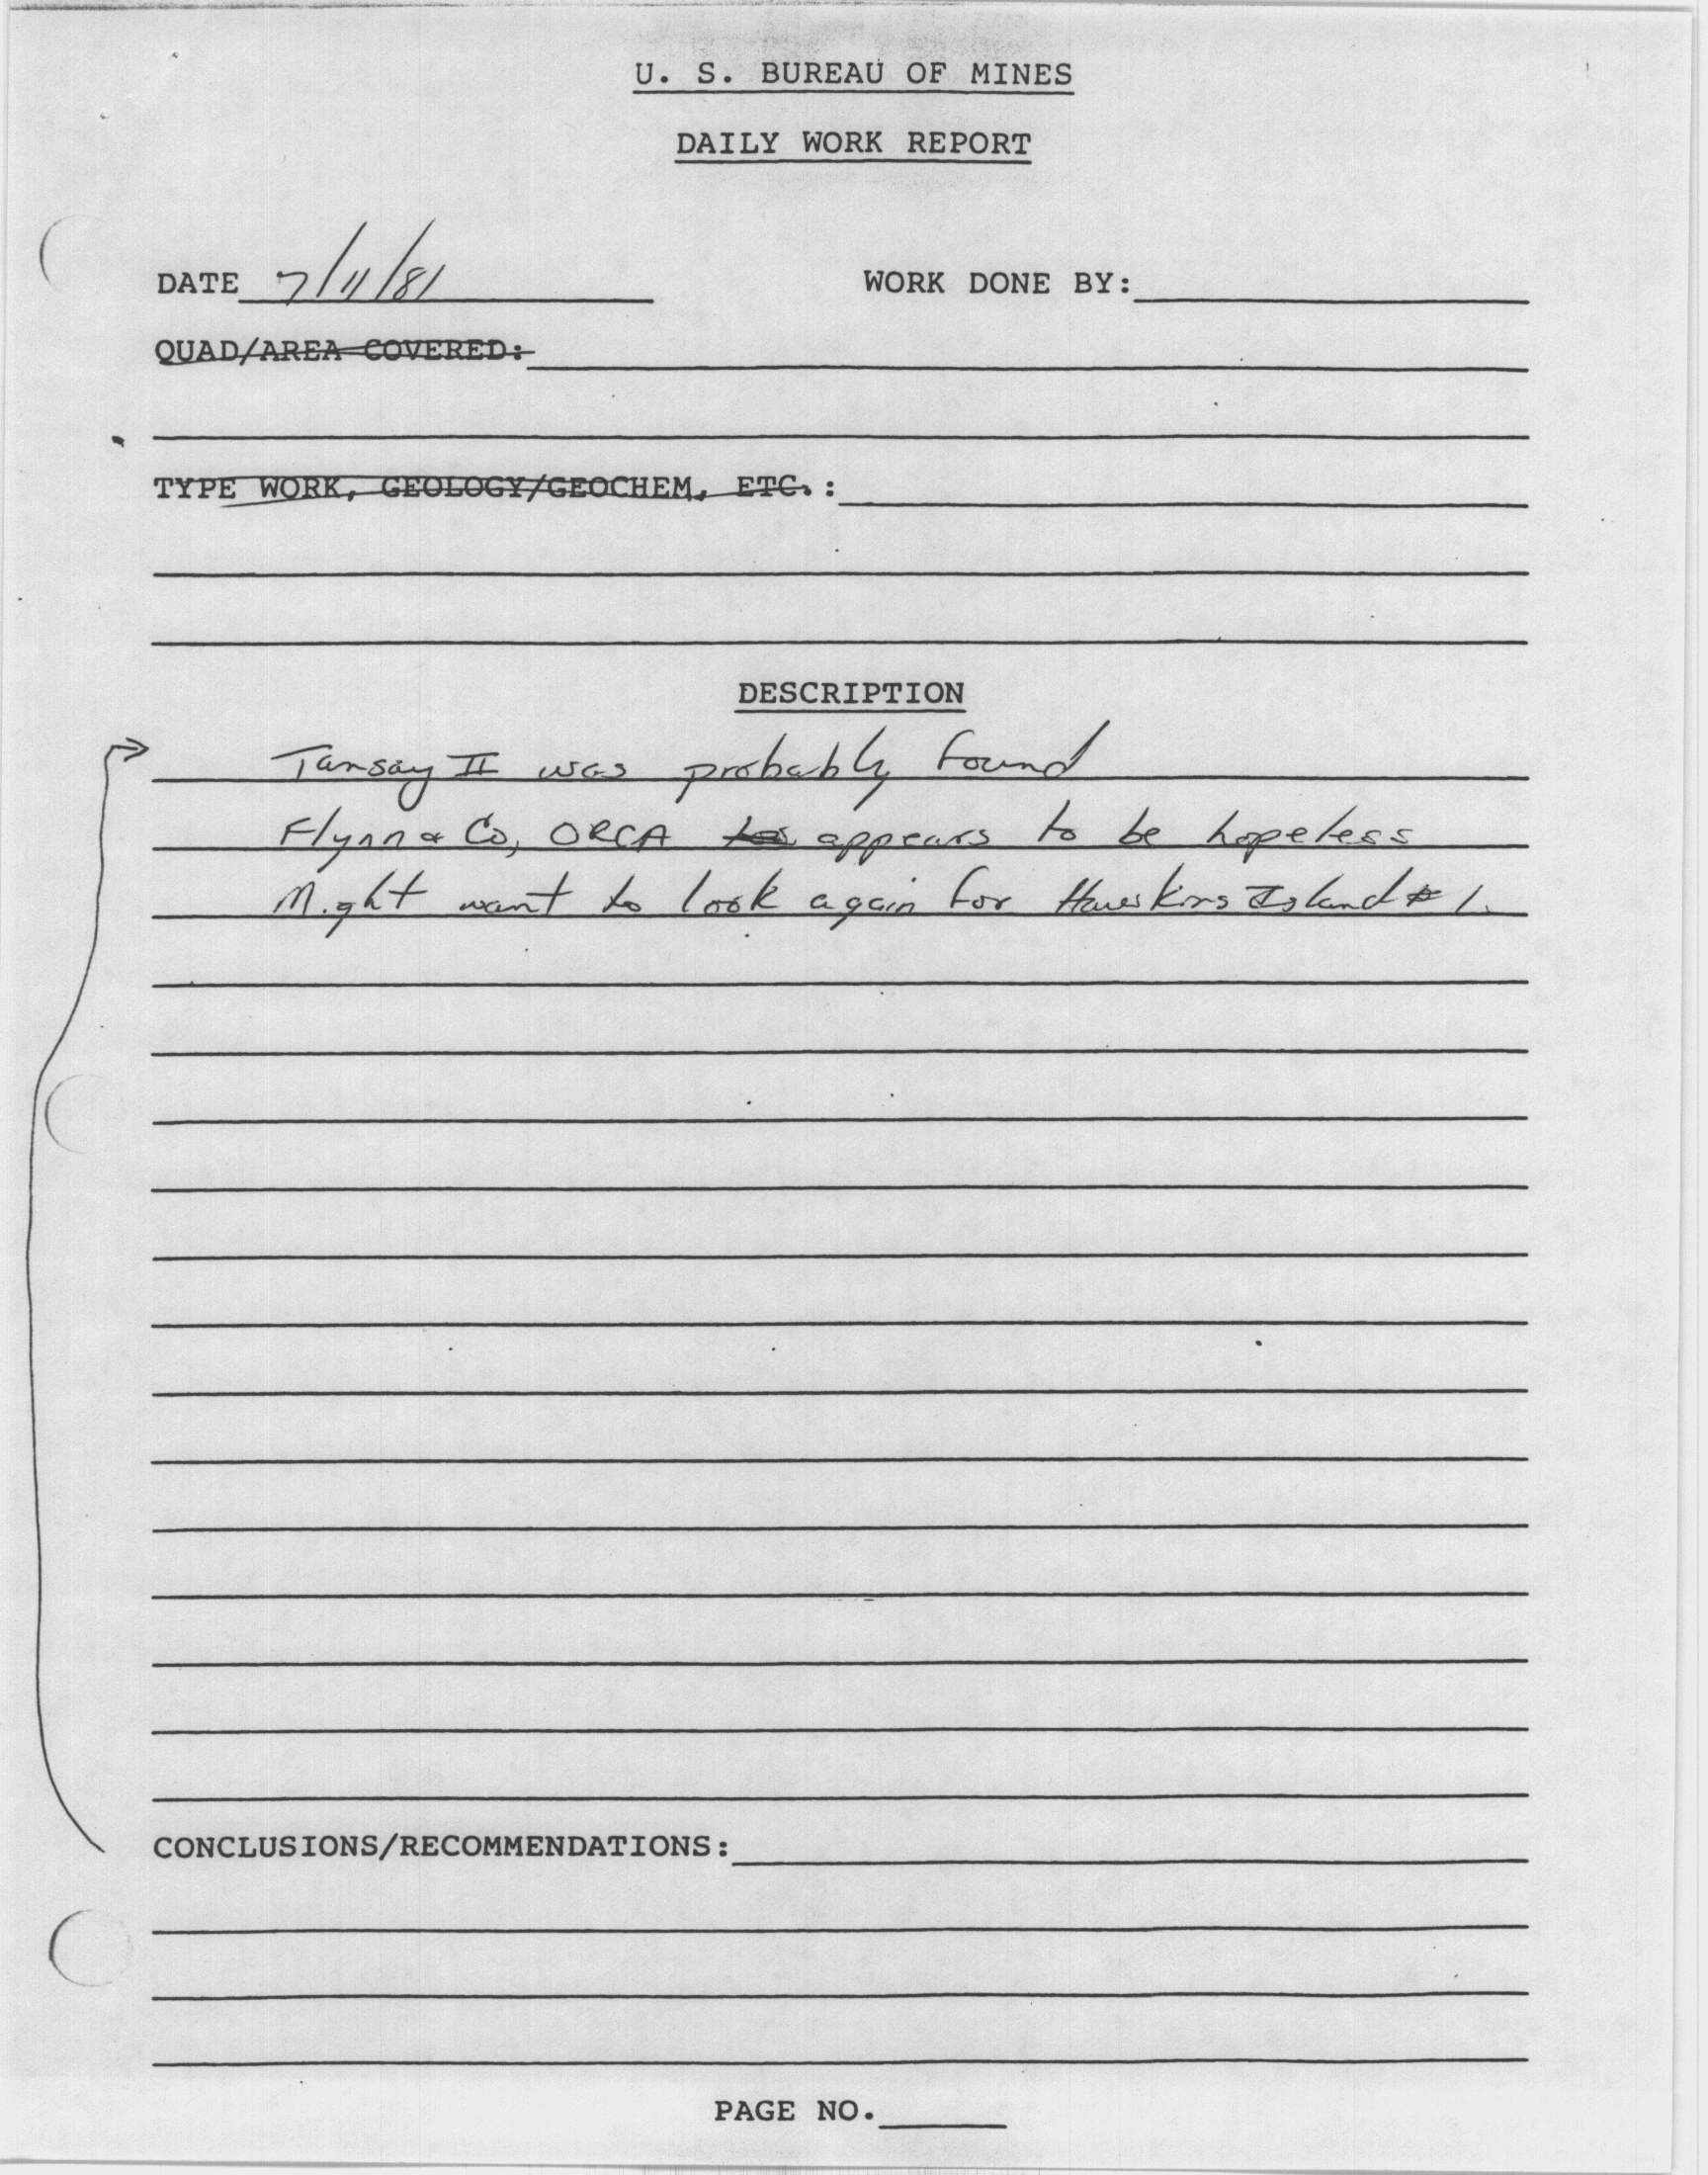 U. S. BUREAU OF MINES
DAILY WORK REPORT
DATE 7/11/81 WORK DONE BY:
QUAD/AREA COVERED:
TYPE WORK, GEOLOGY/GEOCHEM, ETC.:
DESCRIPTION
Tansay II was probably found
Flynn & Co, ORCA appears to be hopeless
Might want to look again for Hawkins Island # 1.
CONCLUSIONS/RECOMMENDATIONS:
PAGE NO.